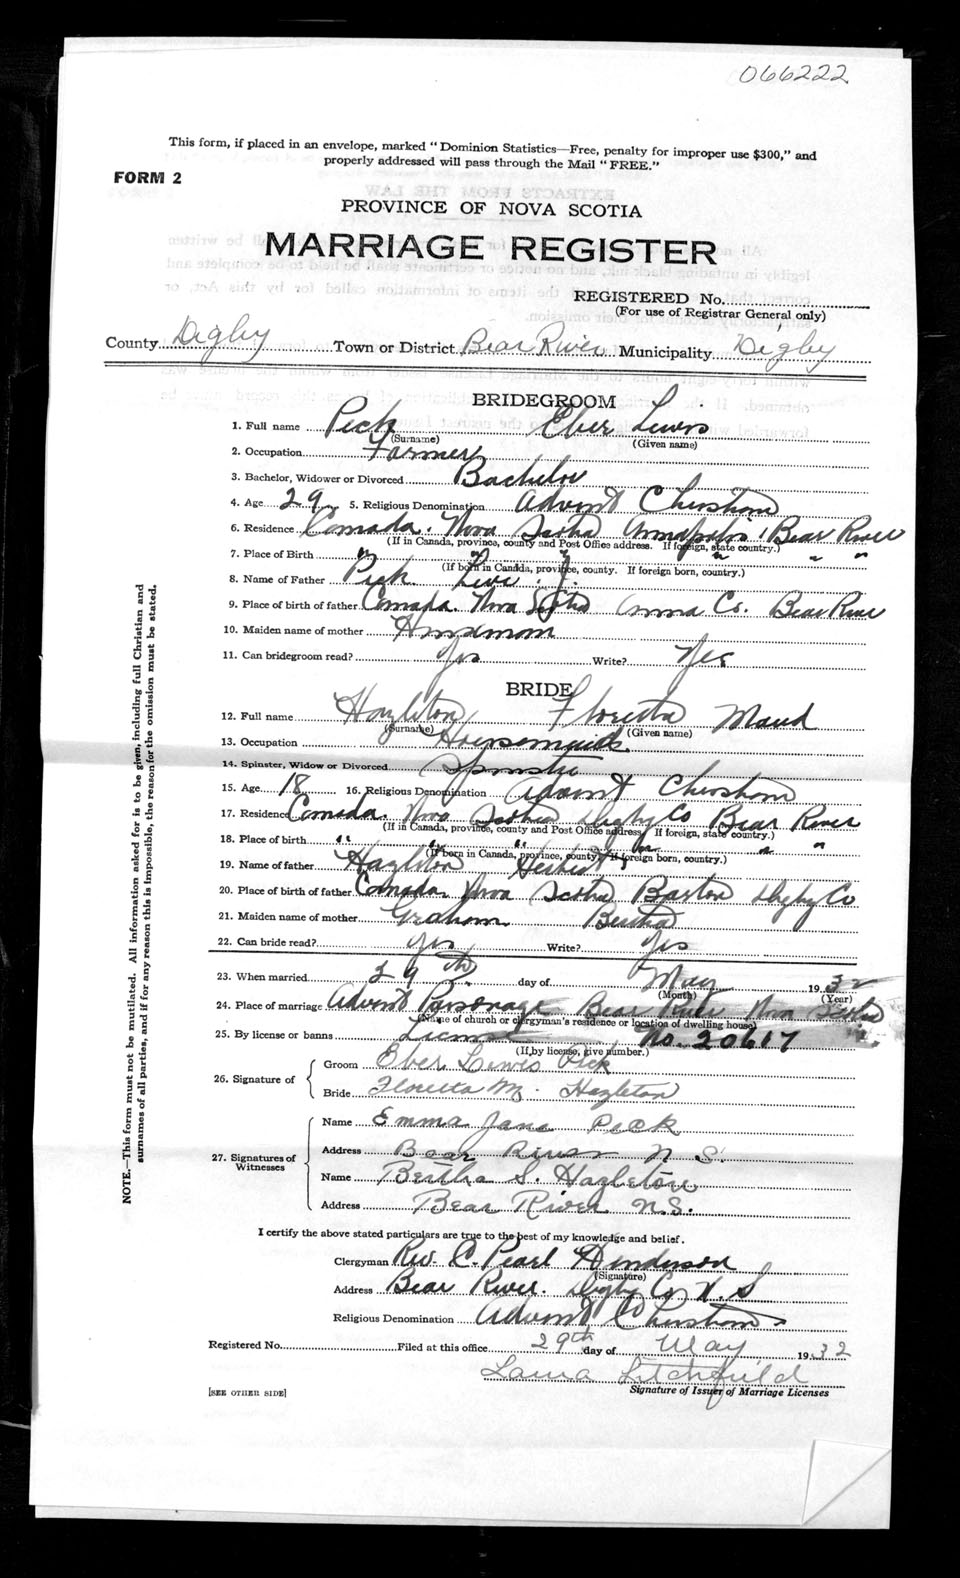 066222
This form, if placed in an envelope, marked "Dominion Statistics—Free, penalty for improper use $300," and
properly addressed will pass through the Mail "FREE."
FORM 2
PROVINCE OF NOVA SCOTIA
MARRIAGE REGISTER
REGISTERED No.
(For use of Registrar General only)
County Digby Town or District Bear River Municipality Digby
BRIDEGROOM
1. Full name Peck Eber Lewis
(Surname) (Given name)
2. Occupation Farmer
3. Bachelor, Widower or Divorced Bachelor
4. Age 29 5. Religious Denomination Advent Christian
6. Residence Canada. Nova Scotia Annapolis, Bear River
(If in Canada, province, county and Post Office address. If foreign, state country.)
7. Place of Birth " " " " " "
(If born in Canada, province, county. If foreign born, country.)
8. Name of Father Peck Levi. J.
9. Place of birth of father Canada. Nova Scotia Anna Co. Bear River
10. Maiden name of mother
11. Can bridegroom read? Yes Write? Yes
BRIDE
12. Full name Hazleton Floretta Maud
(Surname) (Given name)
13. Occupation Housemaid
14. Spinster, Widow or Divorced Spinster
15. Age 18 16. Religious Denomination Advent Christian
17. Residence Canada. Nova Scotia Digby Co Bear River
(If in Canada, province, county and Post Office address. If foreign, state country.)
18. Place of birth " " " " " "
(If born in Canada, province, county. If foreign born, country.)
19. Name of father Hazleton Herbert
20. Place of birth of father Canada Nova Scotia Barton Digby Co
21. Maiden name of mother Graham Bertha
22. Can bride read? Yes Write? Yes
23. When married 29th day of May 1932
(Month) (Year)
24. Place of marriage Advent Parsonage Bear River Nova Scotia
(Name of church or clergyman's residence or location of dwelling house)
25. By license or banns License No. 20617
(If by license, give number.)
26. Signature of Groom Eber Lewis Peck
Bride Floretta M. Hazleton
27. Signatures of Witnesses
Name Emma Jane Peck
Address Bear River N.S.
Name Bertha S. Hazleton
Address Bear River N.S.
I certify the above stated particulars are true to the best of my knowledge and belief.
Clergyman Rev. C. Pearl Henderson
(Signature)
Address Bear River. Digby Co N.S
Religious Denomination Advent Christian
Registered No. Filed at this office 29th day of May 1932
Laura Litchfield
[SEE OTHER SIDE] Signature of Issuer of Marriage Licenses
NOTE.—This form must not be mutilated. All information asked for is to be given, including full Christian and
surnames of all parties, and if for any reason this is impossible, the reason for the omission must be stated.